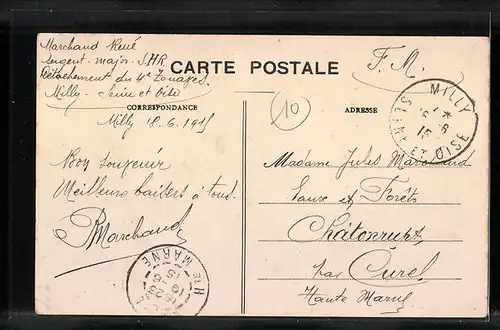 Marchand René
Sergent-major. S.H.R.
Détachement du 4e Zouaves.
Milly. Seine et Oise
CARTE POSTALE
F. M.
CORRESPONDANCE
ADRESSE
10
MILLY
SEINE ET OISE
Milly 18.6.1915
Bon souvenir
Meilleurs baisers à tous.
RMarchand
Madame Jules Marchand
Eaux et Forêts
Châtonrupt
par Curel
Haute Marne
HTE MARNE